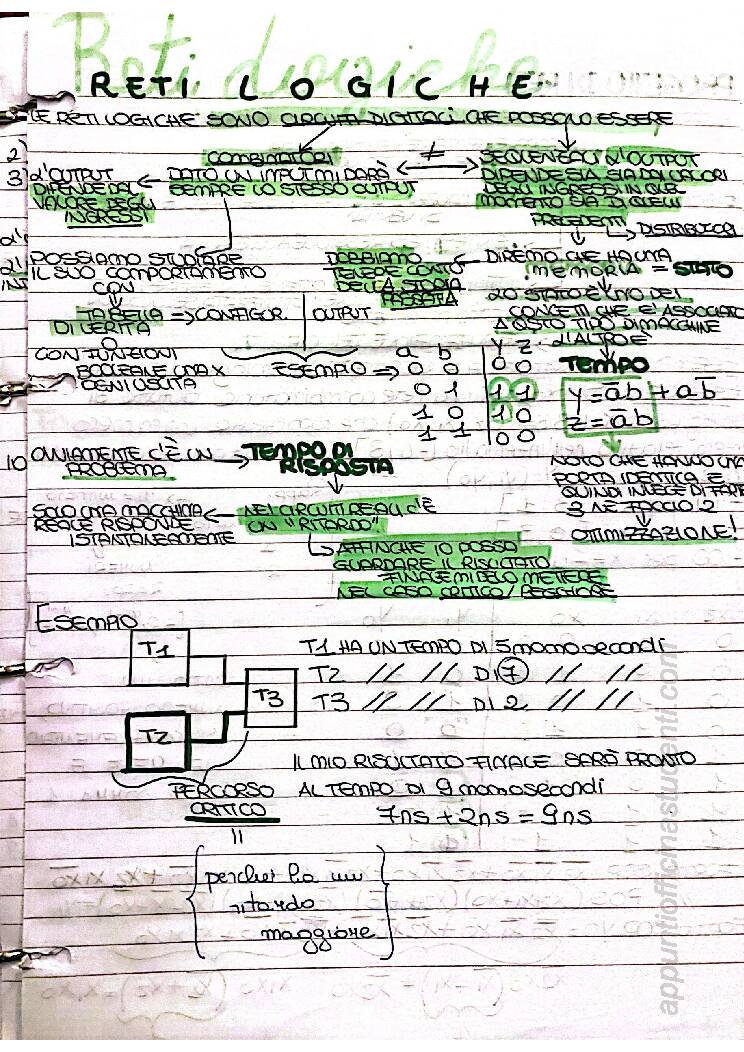 Reti Logiche
RETI LOGICHE
LE RETI LOGICHE SONO CIRCUITI DIGITALI CHE POSSONO ESSERE
COMBINATORI
DATO UN INPUT MI DARÀ
SEMPRE LO STESSO OUTPUT
L'OUTPUT
DIPENDE DAL
VALORE DEGLI
INGRESSI
≠
SEQUENZIALI L'OUTPUT
DIPENDE SIA SIA DAI VALORI
DEGLI INGRESSI IN QUEL
MOMENTO SIA DI QUELLI
PRECEDENTI
DISTRIBUTORI
POSSIAMO STUDIARE
IL SUO COMPORTAMENTO
CON
TABELLA => CONFIGUR. | OUTPUT
DI VERITÀ
O
CON FUNZIONI
BOOLEANE UNA X
OGNI USCITA
DIREMO CHE HA UNA
memoria = STATO
DOBBIAMO
TENERE CONTO
DELLA STORIA
PASSATA
LO STATO È UNO DEI
CONCETTI CHE E' ASSOCIATO
A QSTO TIPO DI MACCHINE
L'ALTRO È
TEMPO
ESEMPIO =>
a b y z
0 0 0 0
0 1 1 1
1 0 1 0
1 1 0 0
y = a̅b + ab̅
z = a̅b
NOTO CHE HANNO UNA
PORTA IDENTICA E
QUINDI INVECE DI FARNE
3 NE FACCIO 2
OTTIMIZZAZIONE!
OVVIAMENTE C'È UN
PROBLEMA
TEMPO DI
RISPOSTA
NEI CIRCUITI REALI C'È
UN "RITARDO"
SOLO UNA MACCHINA
REALE RISPONDE
ISTANTANEAMENTE
AFFINCHE IO POSSA
GUARDARE IL RISULTATO
FINALE MI DEVO METTERE
NEL CASO CRITICO/PEGGIORE
ESEMPIO
T1
T2
T3
T1 HA UN TEMPO DI 5 nanosecondi
T2 // // DI 7 // //
T3 // // DI 2 // //
IL MIO RISULTATO FINALE SARÀ PRONTO
AL TEMPO DI 9 nanosecondi
7ns + 2ns = 9ns
PERCORSO
CRITICO
=
perchè ha un
ritardo
maggiore
appuntiofficinastudenti.com